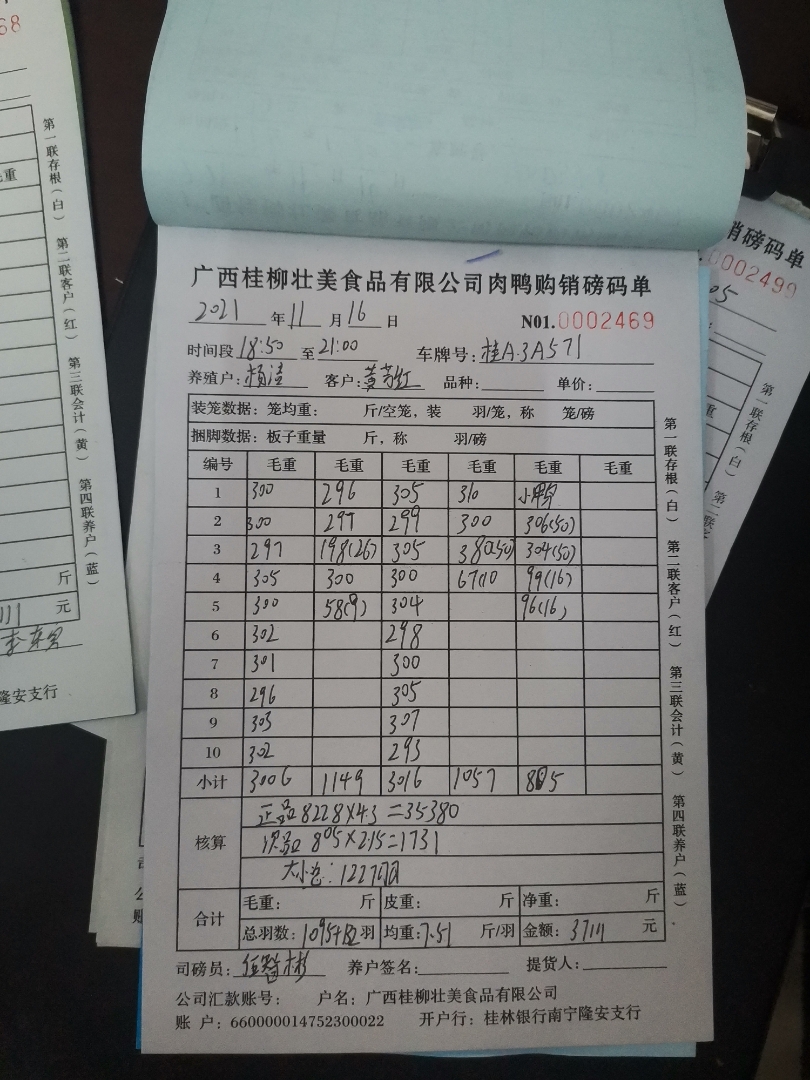 广西桂柳壮美食品有限公司肉鸭购销磅码单
2021 年 11 月 16 日 N01.0002469
时间段 18:50 至 21:00 车牌号: 桂A.3A571
养殖户: 客户: 品种: 单价:
装笼数据: 笼均重: 斤/空笼, 装 羽/笼, 称 笼/磅
捆脚数据: 板子重量 斤, 称 羽/磅
编号 毛重 毛重 毛重 毛重 毛重 毛重
1 300 296 305 310 小鸭
2 300 297 299 300 306(50)
3 297 198(26) 305 380(50) 304(50)
4 305 300 300 67(10 99(16)
5 300 58(9) 304 96(16)
6 302 298
7 301 300
8 296 305
9 303 307
10 302 293
小计 3006 1149 3016 1057 805
核算 正品 8228×4.3=35380
次品 805×2.15=1731
大小
合计 毛重: 斤 皮重: 斤 净重: 斤
总羽数: 羽 均重: 7.51 斤/羽 金额: 37111 元
司磅员: 养户签名: 提货人:
公司汇款账号: 户名: 广西桂柳壮美食品有限公司
账 户: 660000014752300022 开户行: 桂林银行南宁隆安支行
第一联存根(白) 第二联客户(红) 第三联会计(黄) 第四联养户(蓝)
68
毛重
第一联存根(白) 第二联客户(红) 第三联会计(黄) 第四联养户(蓝)
斤
111 元
隆安支行
销磅码单
0002499
05
重
第一联存根(白) 第二联